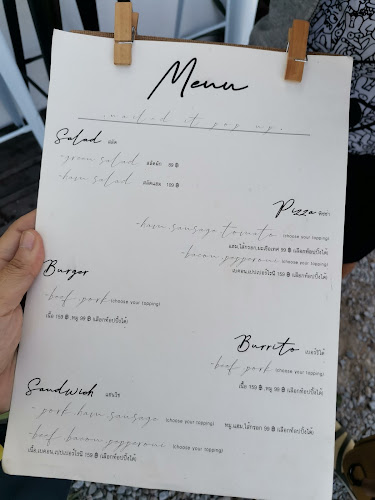 Menu
nailed it pop up.
Salad สลัด
-green salad สลัดผัก 89 ฿
-ham salad สลัดแฮม 109 ฿
Pizza พิซซ่า
-ham sausage tomato (choose your topping)
แฮม,ไส้กรอก,มะเขือเทศ 99 ฿ (เลือกท้อปปิ้งได้)
-bacon pepperoni (choose your topping)
เบคอน,เปปเปอร์โรนี 159 ฿ (เลือกท้อปปิ้งได้)
Burger
-beef, pork (choose your topping)
เนื้อ 159 ฿ ,หมู 99 ฿ (เลือกท้อปปิ้งได้)
Burrito เบอร์ริโต้
-beef, pork (choose your topping)
เนื้อ 159 ฿ ,หมู 99 ฿ (เลือกท้อปปิ้งได้)
Sandwich แซนวิช
- pork ham sausage (choose your topping) หมู,แฮม,ไส้กรอก 99 ฿ (เลือกท้อปปิ้งได้)
-beef bacon pepperoni (choose your topping)
เนื้อ,เบคอน,เปปเปอร์โรนี 159 ฿ (เลือกท้อปปิ้งได้)